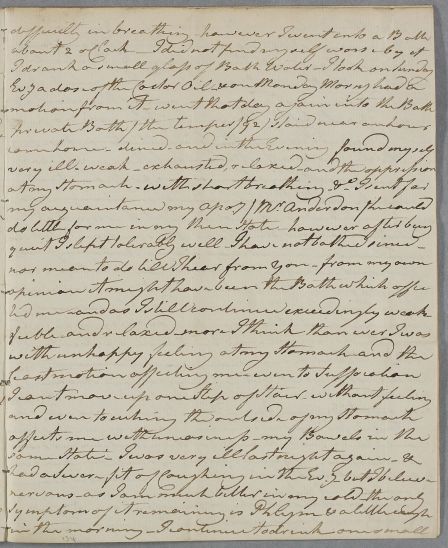 difficulty in breathing however I went into a Bath
about 2 oClock - I did not find myself worse by it
I drank a small glass of Bath Water - I took on Sunday
Evg a dose of the Castor Oil & on Monday Morng had a
motion from it went that day again into the Bath
Private Bath / the temper / 94 I staid near an hour
came home - dined - and in the Evening found myself
very ill - weak - exhausted, relaxed - and the oppression
at my Stomach - with short breathing &c I sent for
my acquaintance my Apoy / Mr Anderdon / he could
do little for me in my then State however after being
quiet I slept tolerably well - I have not bathed since -
nor mean to do till I hear from you - from my own
opinion it might have been the Bath which affec
ted me - and as I still continue exceedingly weak
feeble and relaxed - more I think than ever I was
with unhappy feeling at my Stomach and the
least motion affecting me even to Suffocation
I cant move up one Step of Stair without feeling
and even touching the outside of my Stomach
affects me with uneasiness - my Bowels in the
same State - I was very ill last night again - &
had a severe fit of coughing in the Evg but I believe
nervous - as I am much better in my cold - the only
symptom of it remaining is Phlegm & a little cough
in the morning - I continue to drink one small